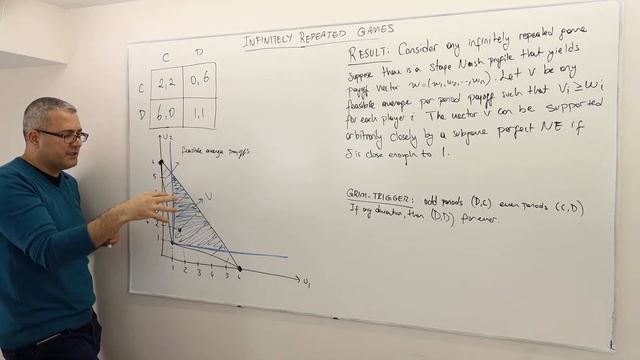 INFINITELY REPEATED GAMES
C D
C 2,2 0,6
D 6,0 1,1
U2
feasible average payoffs
6
5
V
2
1
1 2 3 4 5 6 U1
RESULT: Consider any infinitely repeated game
suppose there is a stage Nash profile that yields
payoff vector w=(w1,w2,...,wn). Let V be any
feasible average per period payoff such that Vi≥wi
for each player i. The vector V can be supported
arbitrarily closely by a subgame perfect NE if
δ is close enough to 1.
GRIM-TRIGGER: odd periods (D,C) even periods (C,D)
If any deviation, then (D,D) forever.